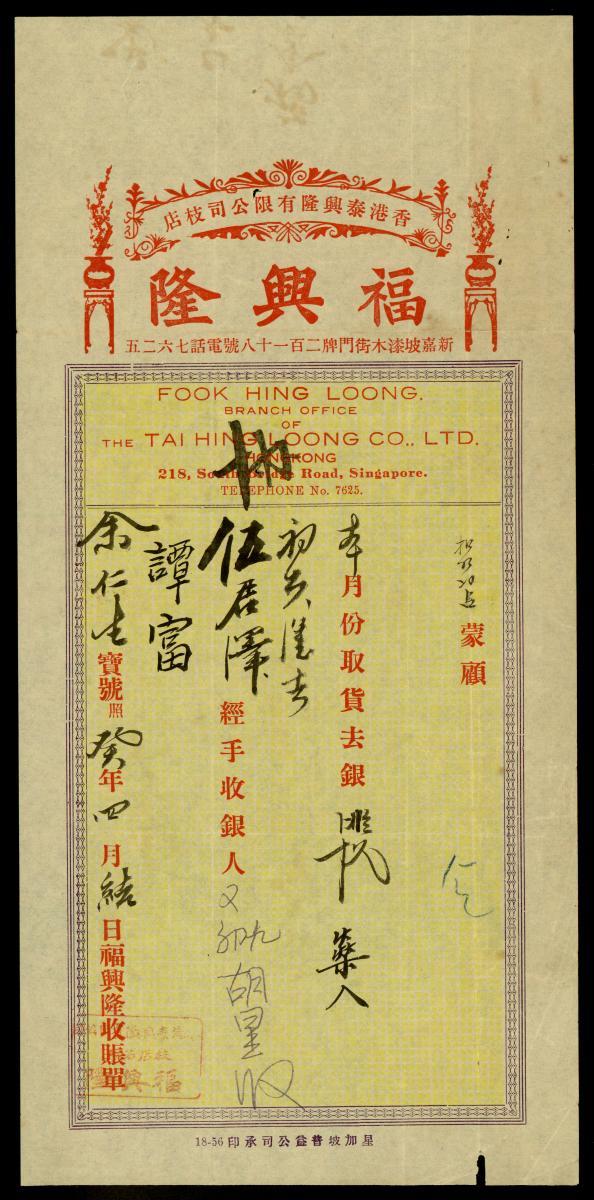 香港泰興隆有限公司枝店
福興隆
新嘉坡漆木街門牌二百一十八號電話七六二五
FOOK HING LOONG.
BRANCH OFFICE
OF
THE TAI HING LOONG CO., LTD.
HONGKONG
218, South Bridge Road, Singapore.
TELEPHONE No. 7625.
蒙顧
本月份取貨去銀
伍居澤經手收銀人 胡星收
譚富
余仁生寶號照癸年四月結日福興隆收賬單
福興隆
星加坡普益公司承印 18-56